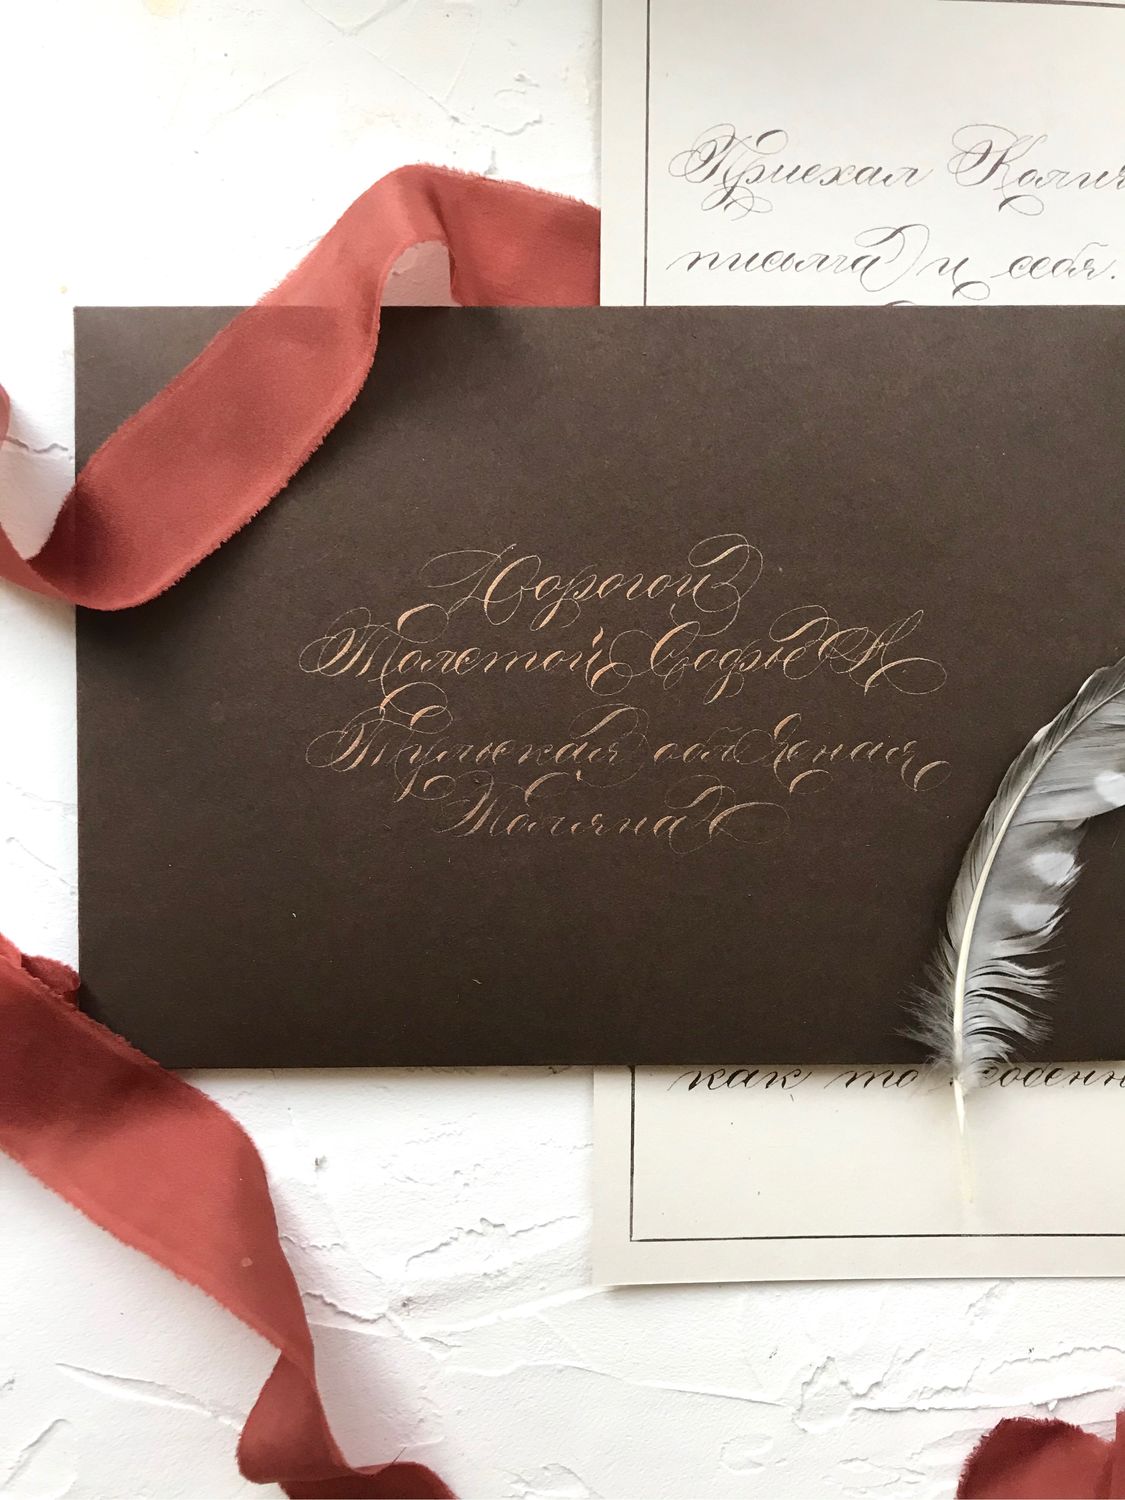 Приехал Колич
письма и себя.
Дорогой
Толстой Софье А
Тульская обл Ясная
Поляна
как то особенн